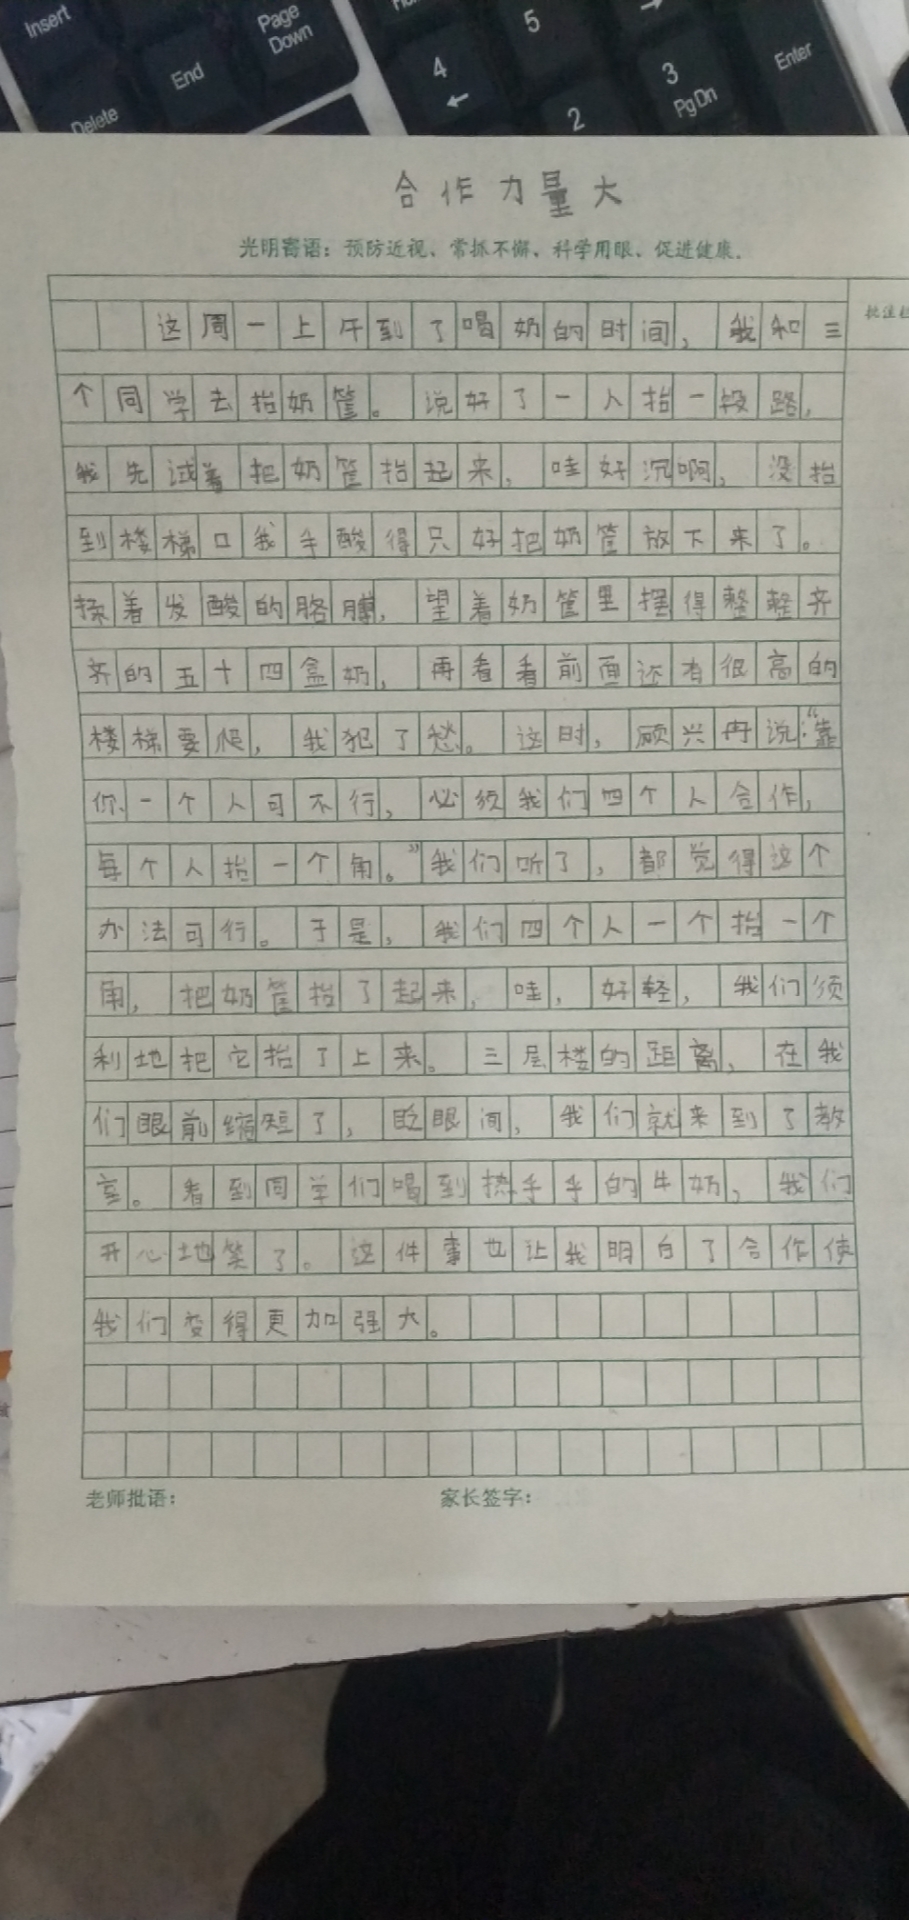 Insert
Page
Down
5
→
End
4
←
3
PgDn
Enter
Delete
2
合作力量大
光明寄语：预防近视、常抓不懈、科学用眼、促进健康.
这周一上午到了喝奶的时间，我和三
个同学去抬奶筐。说好了一人抬一段路，
我先试着把奶筐抬起来，哇好沉啊，没抬
到楼梯口我手酸得只好把奶筐放下来了。
揉着发酸的胳膊，望着奶筐里摆得整整齐
齐的五十四盒奶，再看看前面还有很高的
楼梯要爬，我犯了愁。这时，顾兴冉说：“靠
你一个人可不行，必须我们四个人合作，
每个人抬一个角。”我们听了，都觉得这个
办法可行。于是，我们四个人一个抬一个
角，把奶筐抬了起来，哇，好轻，我们须
利地把它抬了上来。三层楼的距离，在我
们眼前缩短了，眨眼间，我们就来到了教
室。看到同学们喝到热乎乎的牛奶，我们
开心地笑了。这件事也让我明白了合作使
我们变得更加强大。
老师批语：
家长签字：